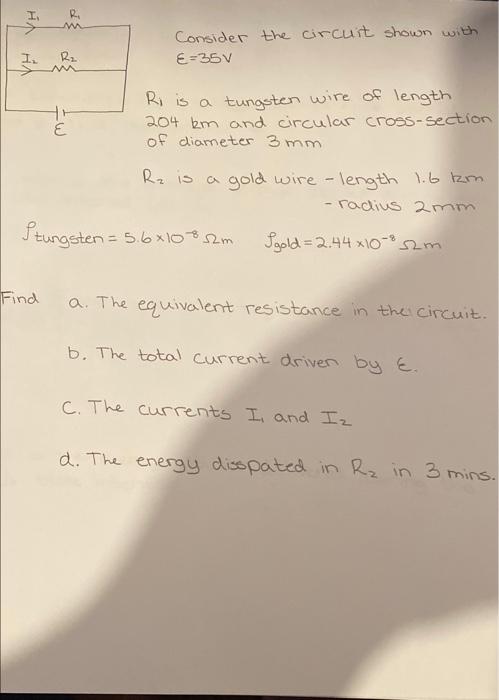 I₁ R₁
I₂ R₂
ε
Consider the circuit shown with
ε=35V
R₁ is a tungsten wire of length
204 km and circular cross-section
of diameter 3mm
R₂ is a gold wire - length 1.6 km
- radius 2mm
ρtungsten = 5.6×10⁻⁸ Ωm ρgold = 2.44×10⁻⁸ Ωm
Find a. The equivalent resistance in the circuit.
b. The total current driven by ε.
C. The currents I₁ and I₂
d. The energy disspated in R₂ in 3 mins.